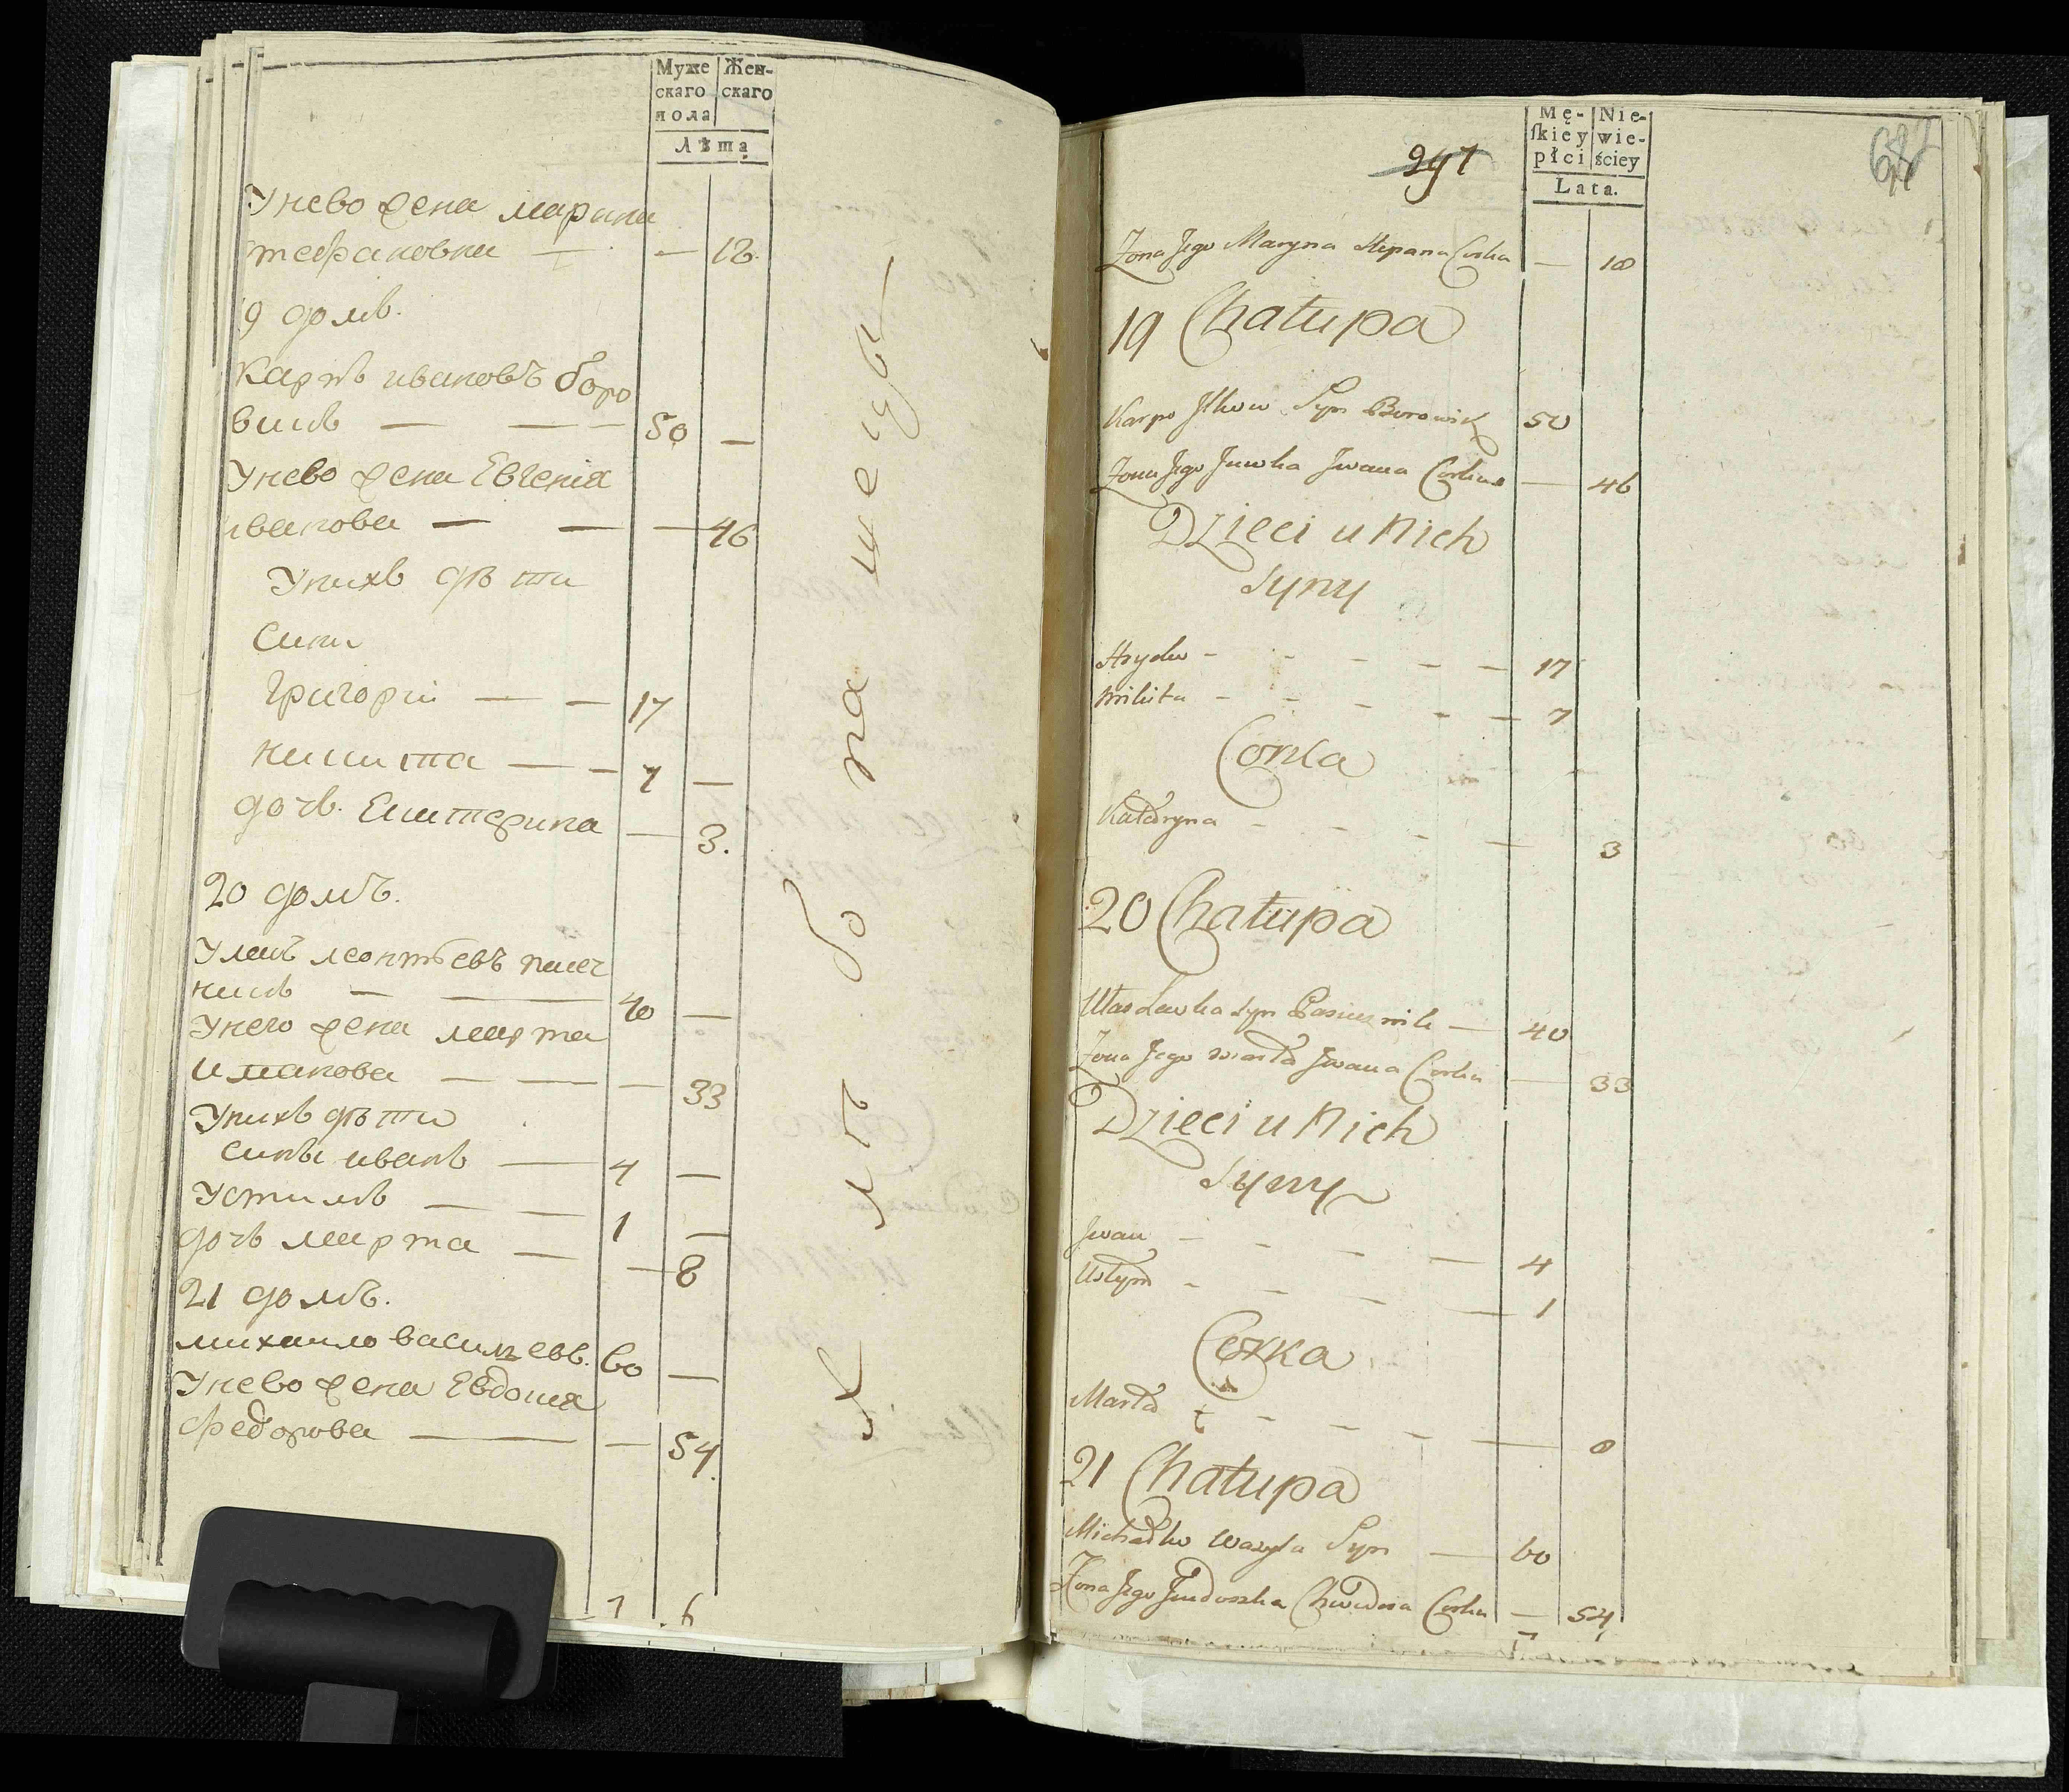 Муже Жен-
скаго скаго
пола
Лѣта
Унево жена марина
стефановна — — 18.
19 домъ.
Карпъ ивановъ боро
викъ — — — 50 —
Унево жена Евгенiя
иванова — — — 46
Унихъ дѣти
Сини
Григорiй — — 17
никита — — 7 —
дочь. Екатерина — 3.
20 домъ.
Уласъ леонтьевъ пасеч
никъ — — 40 —
Унего жена марта
иванова — — — 33
Унихъ дѣти
синъи иванъ — 4 —
Устимъ — — 1 —
дочь марта — — 8
21 домъ.
михаило василъевъ. 60 —
Унево жена Евдокия
федорова — — 54.
7 . 6
297
68
Mę- Nie-
skiey wie-
płci ściey
Lata.
Zona Jego Maryna Stepana Corka — 18
19 Chałupa
Karpo Jlkow Syn Borowik 50
Zona Jego Juwka Jwana Corka — 46
Dzieci u Nich
Syny
Hryćko - - - - - 17
Mikita - - - - - 7
Corka
Katarzyna - - - - 3
20 Chałupa
Ułas Lewka Syn Pasiecznik — 40
Zona Jego Marta Jwana Corka — 33
Dzieci u Nich
Syny
Jwan - - - - 4
Ustym - - - - 1
Corka
Marta - - - - 8
21 Chałupa
Michałko Wasyla Syn — 60
Zona Jego Jewdoszka Chwedora Corka — 54
7